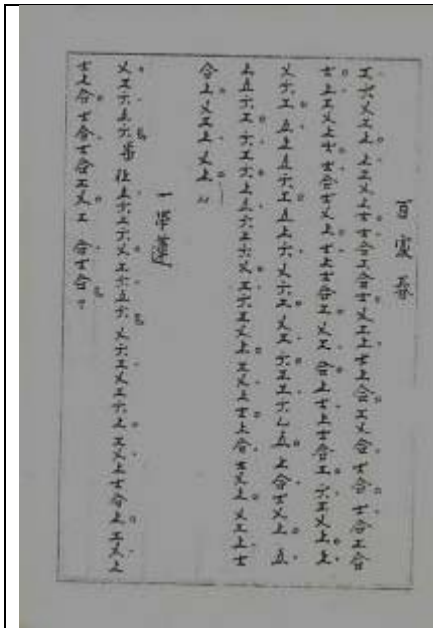 百家春
工六乂工上上工乂上士士合工合士乂工上士上合工乂合士合士合工合
士上工乂上士士合士乂上士上士合工乂工合上士上士合工六工乂上上
乂六工五上五六工五上六乂六工乂工六工工六乙五上合士乂上五
上五六工六工六上五六工六六乂工六工乂上工乂上士上合士乂上乂工上士
合上乂工上乂上
一 蓮
乂工六五六 上六工六乂工六五六乂六工乂工六上工乂上士合上工乂上
士上合士合士合工乂工合士合